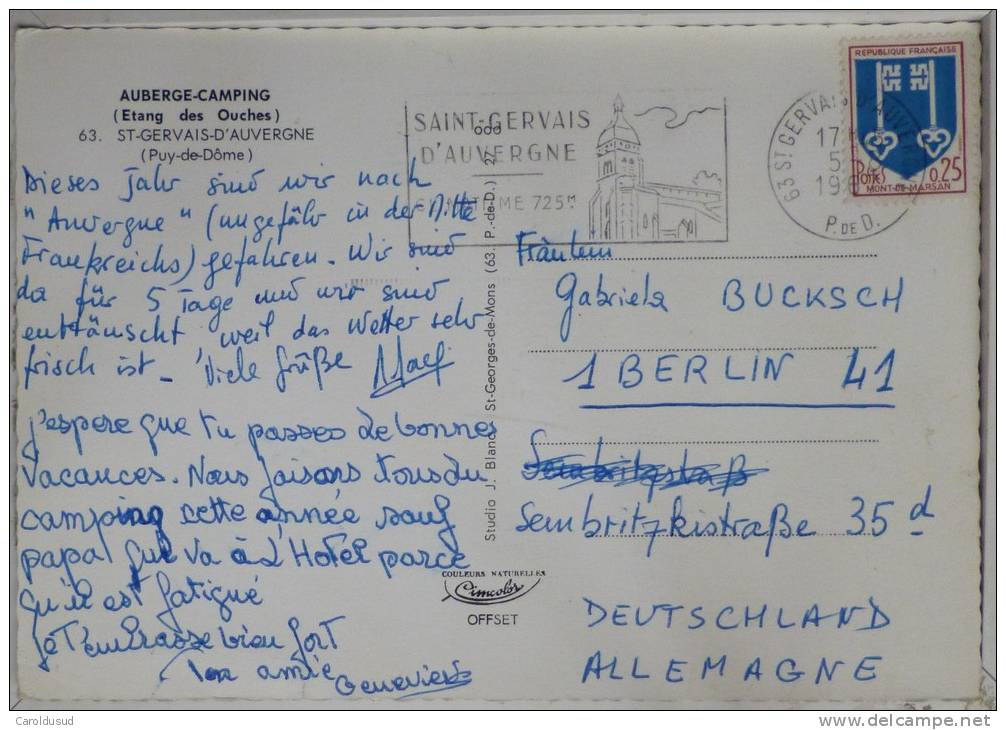 AUBERGE-CAMPING
(Etang des Ouches)
63. ST-GERVAIS-D'AUVERGNE
(Puy-de-Dôme)
Dieses Jahr sind wir nach
"Auvergne" (ungefähr in der Mitte
Frankreichs) gefahren. Wir sind
da für 5 Tage und wir sind
enttäuscht weil das Wetter sehr
frisch ist _ Viele Grüße
J'espere que tu passes de bonnes
vacances. Nous faisons tous du
camping cette année sauf
papa que va à l'Hotel parce
qu'il est fatigué
Je t'embrasse bien fort
Ton amie Genevieve
Studio J. Blanc St-Georges-de-Mons (63. P.-de-D.)
COULEURS NATURELLES
Cimcolor
OFFSET
SAINT-GERVAIS
D'AUVERGNE
725 M
63 ST GERVAIS D'AUVERGNE
17
5
19
P. DE D.
REPUBLIQUE FRANÇAISE
POSTES 0,25
MONT-DE-MARSAN
Fräulein
Gabriela BUCKSCH
1 BERLIN 41
Sembritzkistraße 35 d
DEUTSCHLAND
ALLEMAGNE
Caroldusud
delcampe.net